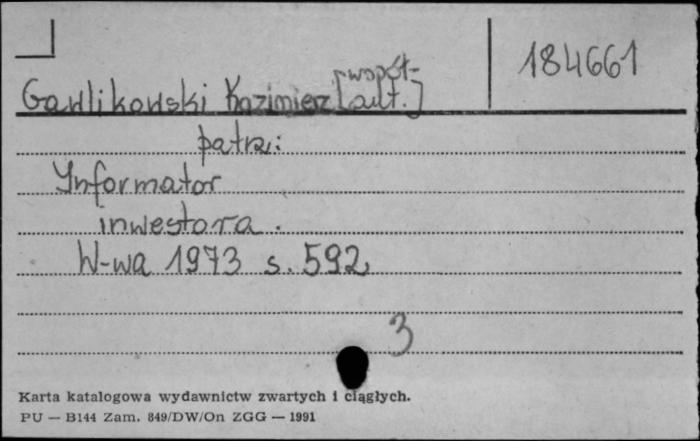 184661
Gawlikowski Kazimierz [współ-
aut.]
patrz:
Informator
inwestora.
W-wa 1973 s. 592
3
Karta katalogowa wydawnictw zwartych i ciągłych.
PU — B144 Zam. 849/DW/On ZGG — 1991